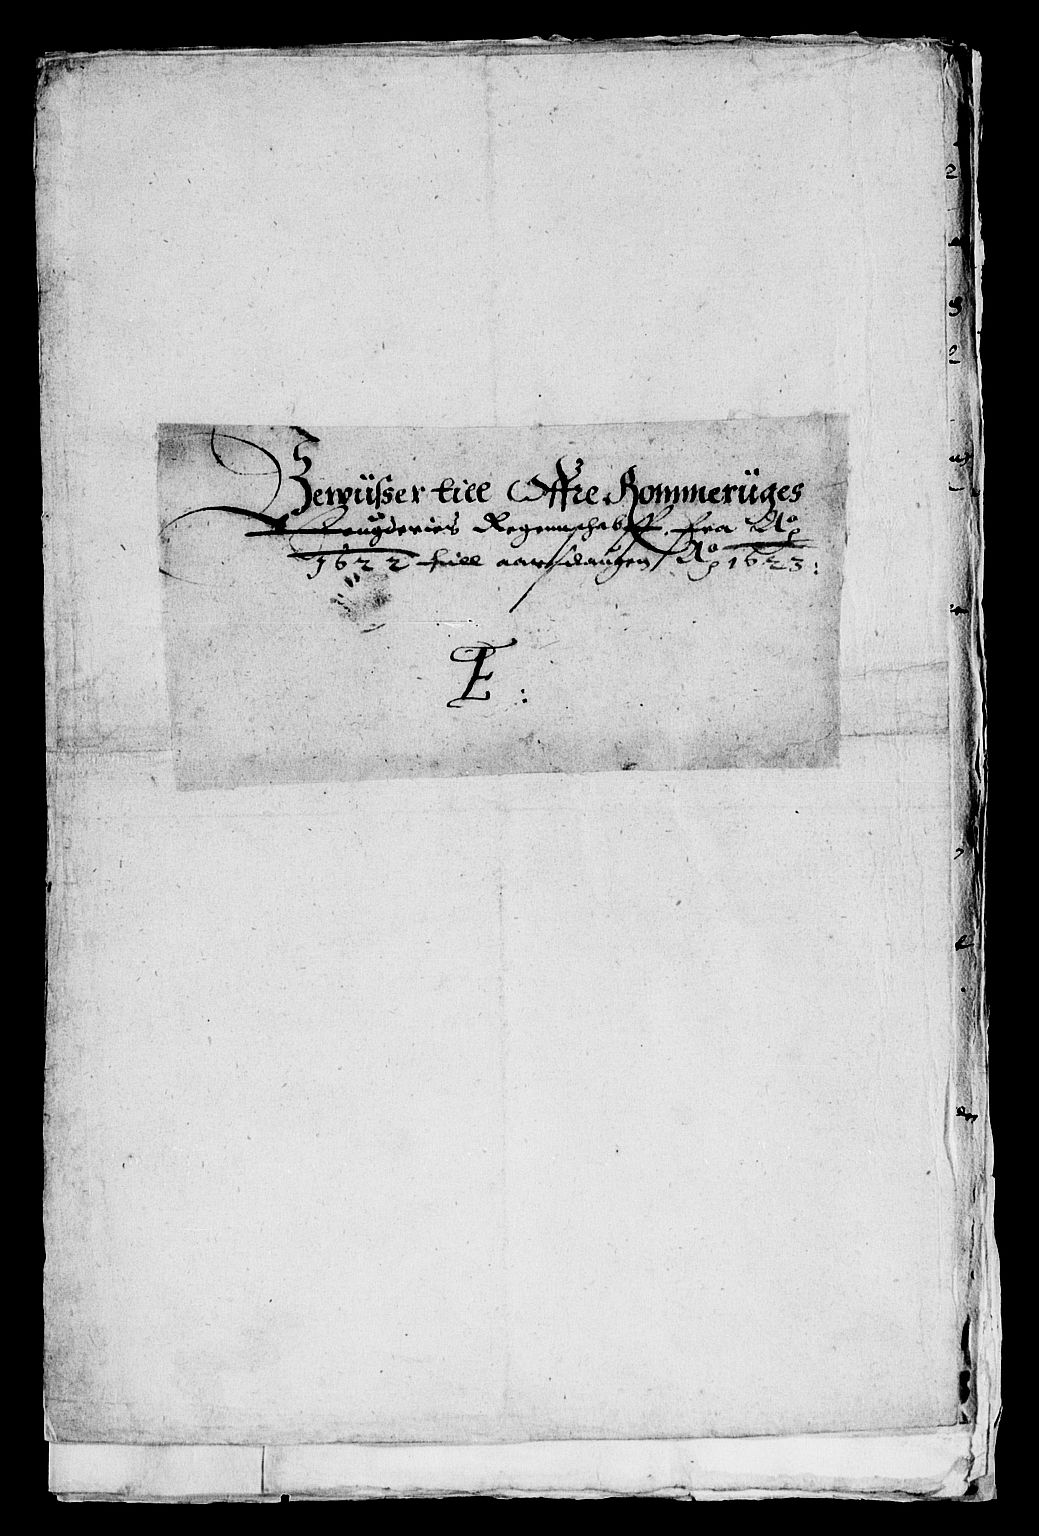 Bewüsser till Øffre Rommerüges
Fougderies Regennschabff fra Ao
1622 till aarsdaugen Ao 1623:
E: